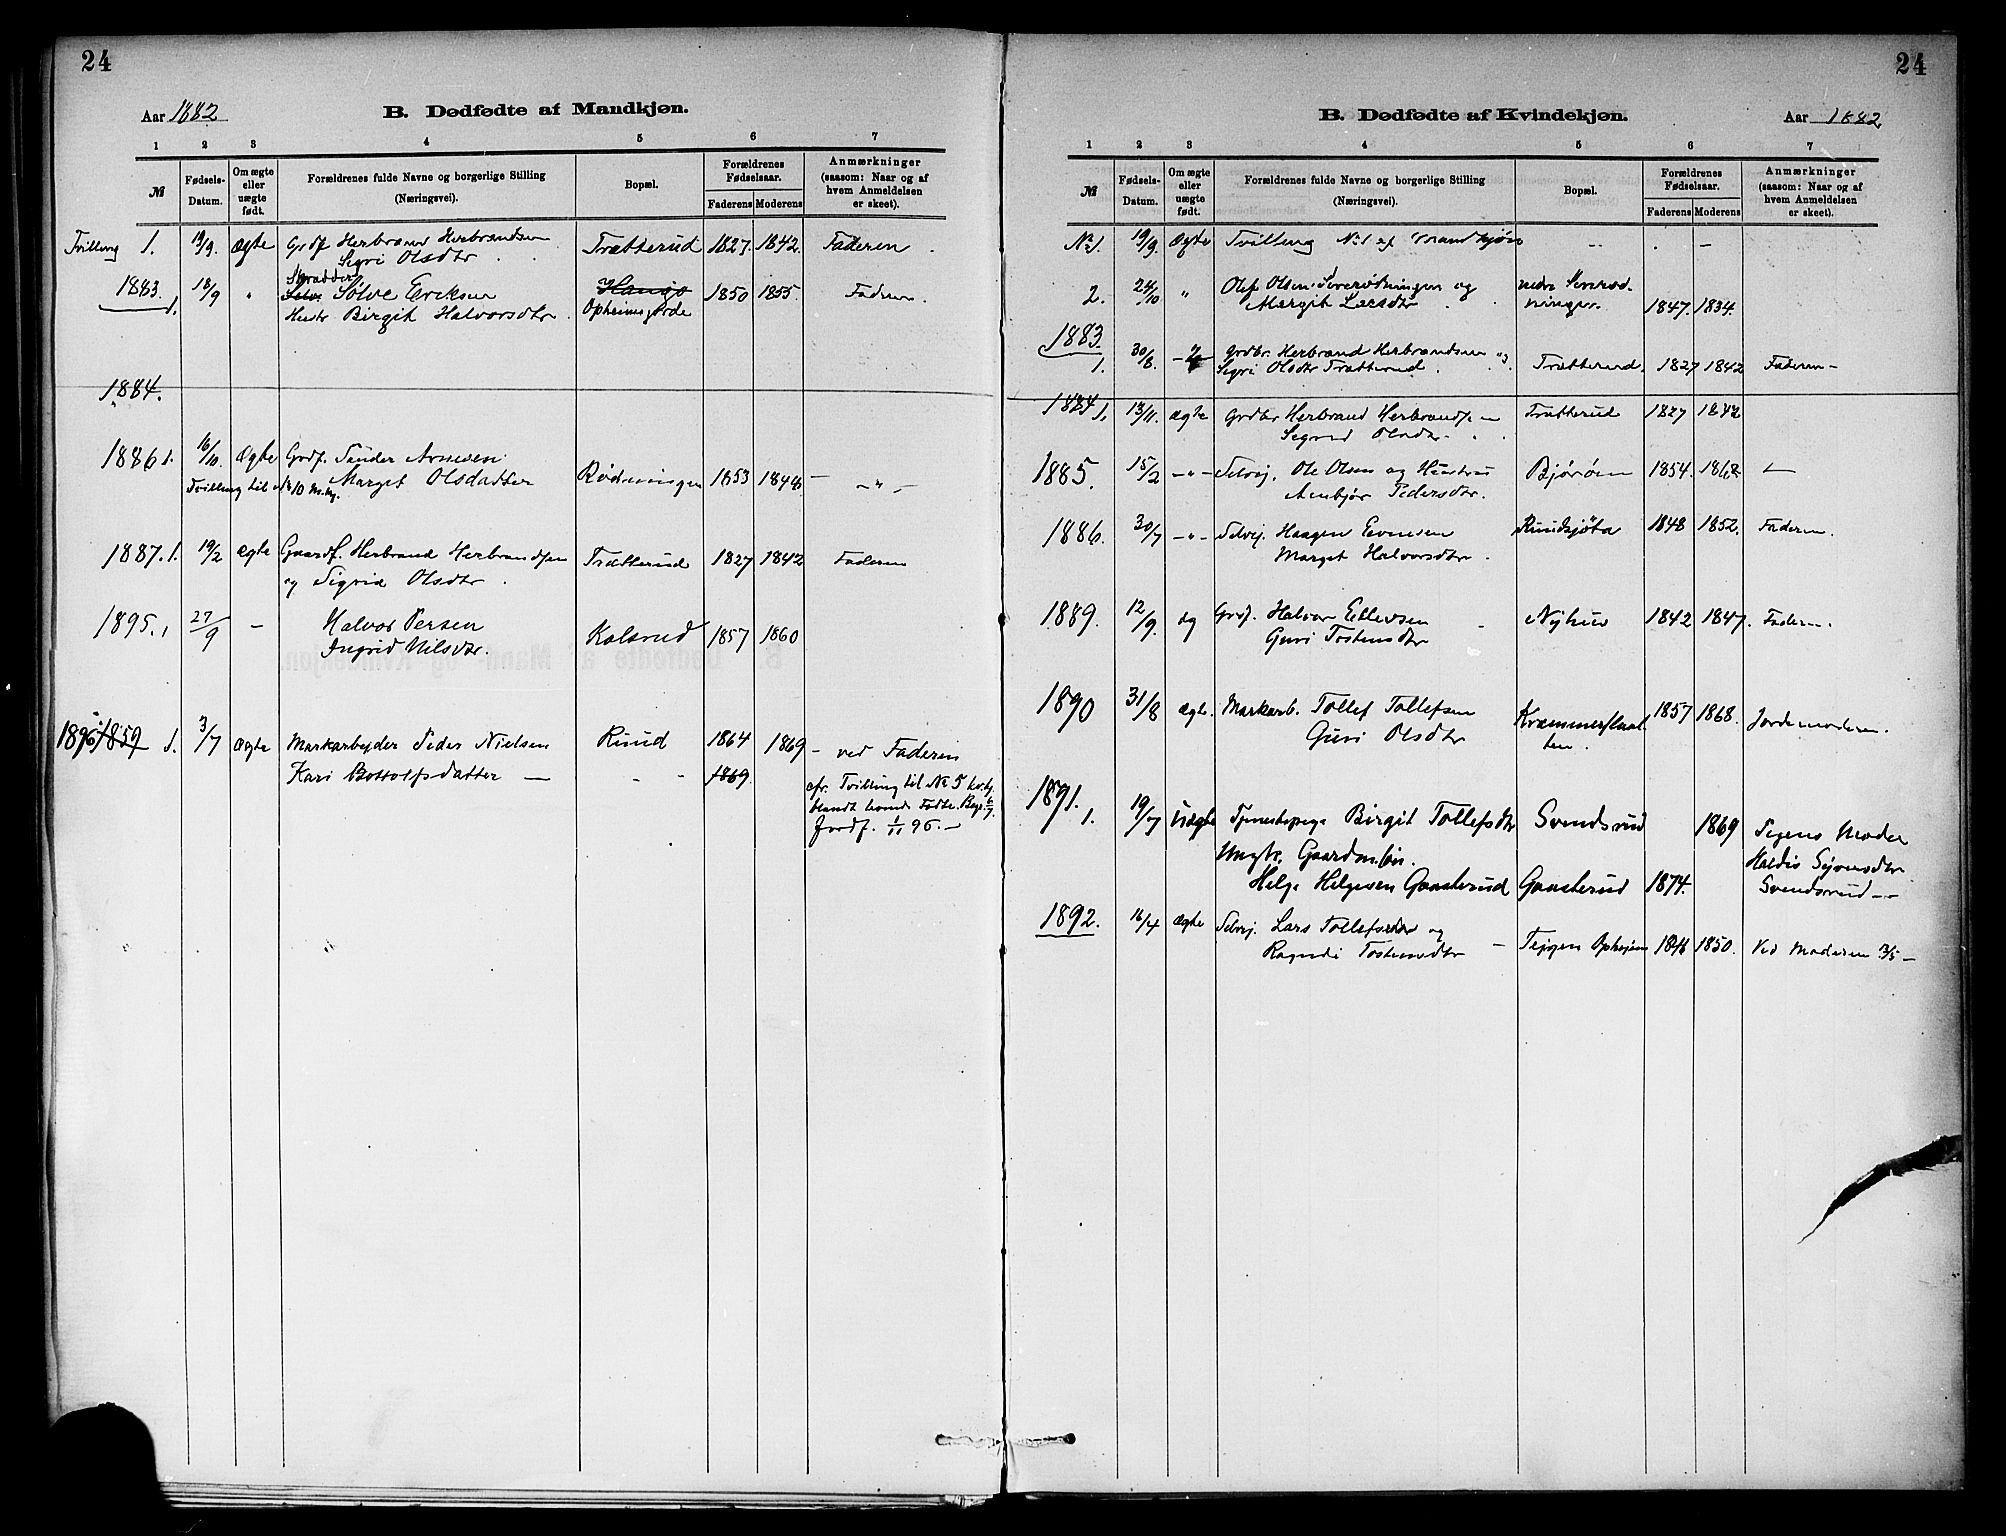 24
Aar 1882 B. Dødfødte af Mandkjøn.
1 2 3 4 5 6 7
№ Fødsels-Datum. Om ægte eller uægte født. Forældrenes fulde Navne og borgerlige Stilling (Næringsvei). Bopæl. Forældrenes Fødselsaar. Faderens Moderens Anmærkninger (saasom: Naar og af hvem Anmeldelsen er skeet).
Tvilling 1. 19/9. Ægte Grdf Herbrand Herbrandsen Trætterud 1827. 1842. Faderen
Segri Olsdtr
1883. 18/9 " Skrædder
1. Sølve Eriksen 1850 1855. Faderen.
Hustr Birgit Halvorsdtr. Opheimsgjorde
1884.
1886 1. 16/10. Ægte Grdf. Sander Arnesen Rødningen 1853 1848 – " –
Tvilling til № 10 M.kj. Marget Olsdatter
1887. 1. 19/2 Ægte Gaardf. Herbrand Herbrandsen Trætterud 1827 1842 Faderen
og Sigrid Olsdtr.
1895. 1 27/9 – Halvor Persen Kolsrud 1857 1860
Ingrid Nilsdtr.
1896 1859 1. 3/7 Ægte Markarbejder Peder Nielsen Ruud 1864 1869 – ved Faderen
Kari Bottolfsdatter — " " 1869.
cfr. Tvilling til № 5 kv.kj.
blandt levende Fødte. Begr. 6/7.
Jordf. 1/11 96. –
24
B. Dødfødte af Kvindekjøn. Aar 1882
1 2 3 4 5 6 7
№ Fødsels-Datum. Om ægte eller uægte født. Forældrenes fulde Navne og borgerlige Stilling (Næringsvei). Bopæl. Forældrenes Fødselsaar. Faderens Moderens Anmærkninger (saasom: Naar og af hvem Anmeldelsen er skeet).
№ 1. 19/9. Ægte Tvilling № 1 af Mandkjøn – . –
2. 24/10 " Olef Olsen Severødningen og nedre Severød-
Margit Larsdtr ningen. 1847. 1834.
1883. 30/8. Grdbr. Herbrand Herbrandsen og
1. Segri Olsdtr Trætterud. Trætterud. 1827 1842 Faderen –
1884 1. 13/11. Ægte Grdbr Herbrand Herbrandsen Trætterud 1827 1842
Segrid Olsdtr.
1885. 15/2 – " – Selvej. Ole Olsen og Hustru Bjørøen 1854. 1862 –
Ambjør Pedersdtr.
1886. 30/7 – " – Selvej. Haagen Evensen Ruudsjøta 1848 1852. Faderen.
Marget Halvorsdtr.
1889. 12/9. Grdf. Halvor Ellevsen Nyhus 1842 1847. Faderen.
Guri Tostensdtr
1890 31/8 Ægte. Markarb. Tollef Tollefsen Kræmmerslaat- 1857 1868. Jordemoderen.
Guri Olsdtr ten.
1891. 19/7 Uægte Tjenestepige Birgit Tollefsdtr Svendsrud 1869 Pigens Moder
1. Ungk. Gaardm.søn. Svendsrud –
Helge Helgesen Gaasterud Gaasterud 1874.
1892. 16/4 Ægte Selvej. Lars Tollefsen og
Ragndi Tostensdtr – Tejgen Ophejm 1846 1850. Ved Moderen 3/5 –